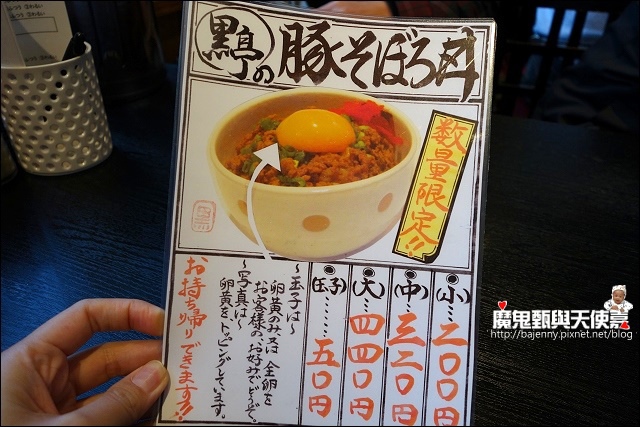 黒亭の豚そぼろ丼
数量限定!!
(小)…二〇〇円
(中)…三二〇円
(大)…四四〇円
(玉子)……五〇円
～玉子は～
卵黄のみ又は全卵
お客様のお好みでどうぞ。
～写真は～
卵黄をトッピングしています。
お持ち帰りできます!!
魔鬼甄與天使嘉
http://bajenny.pixnet.net/blog